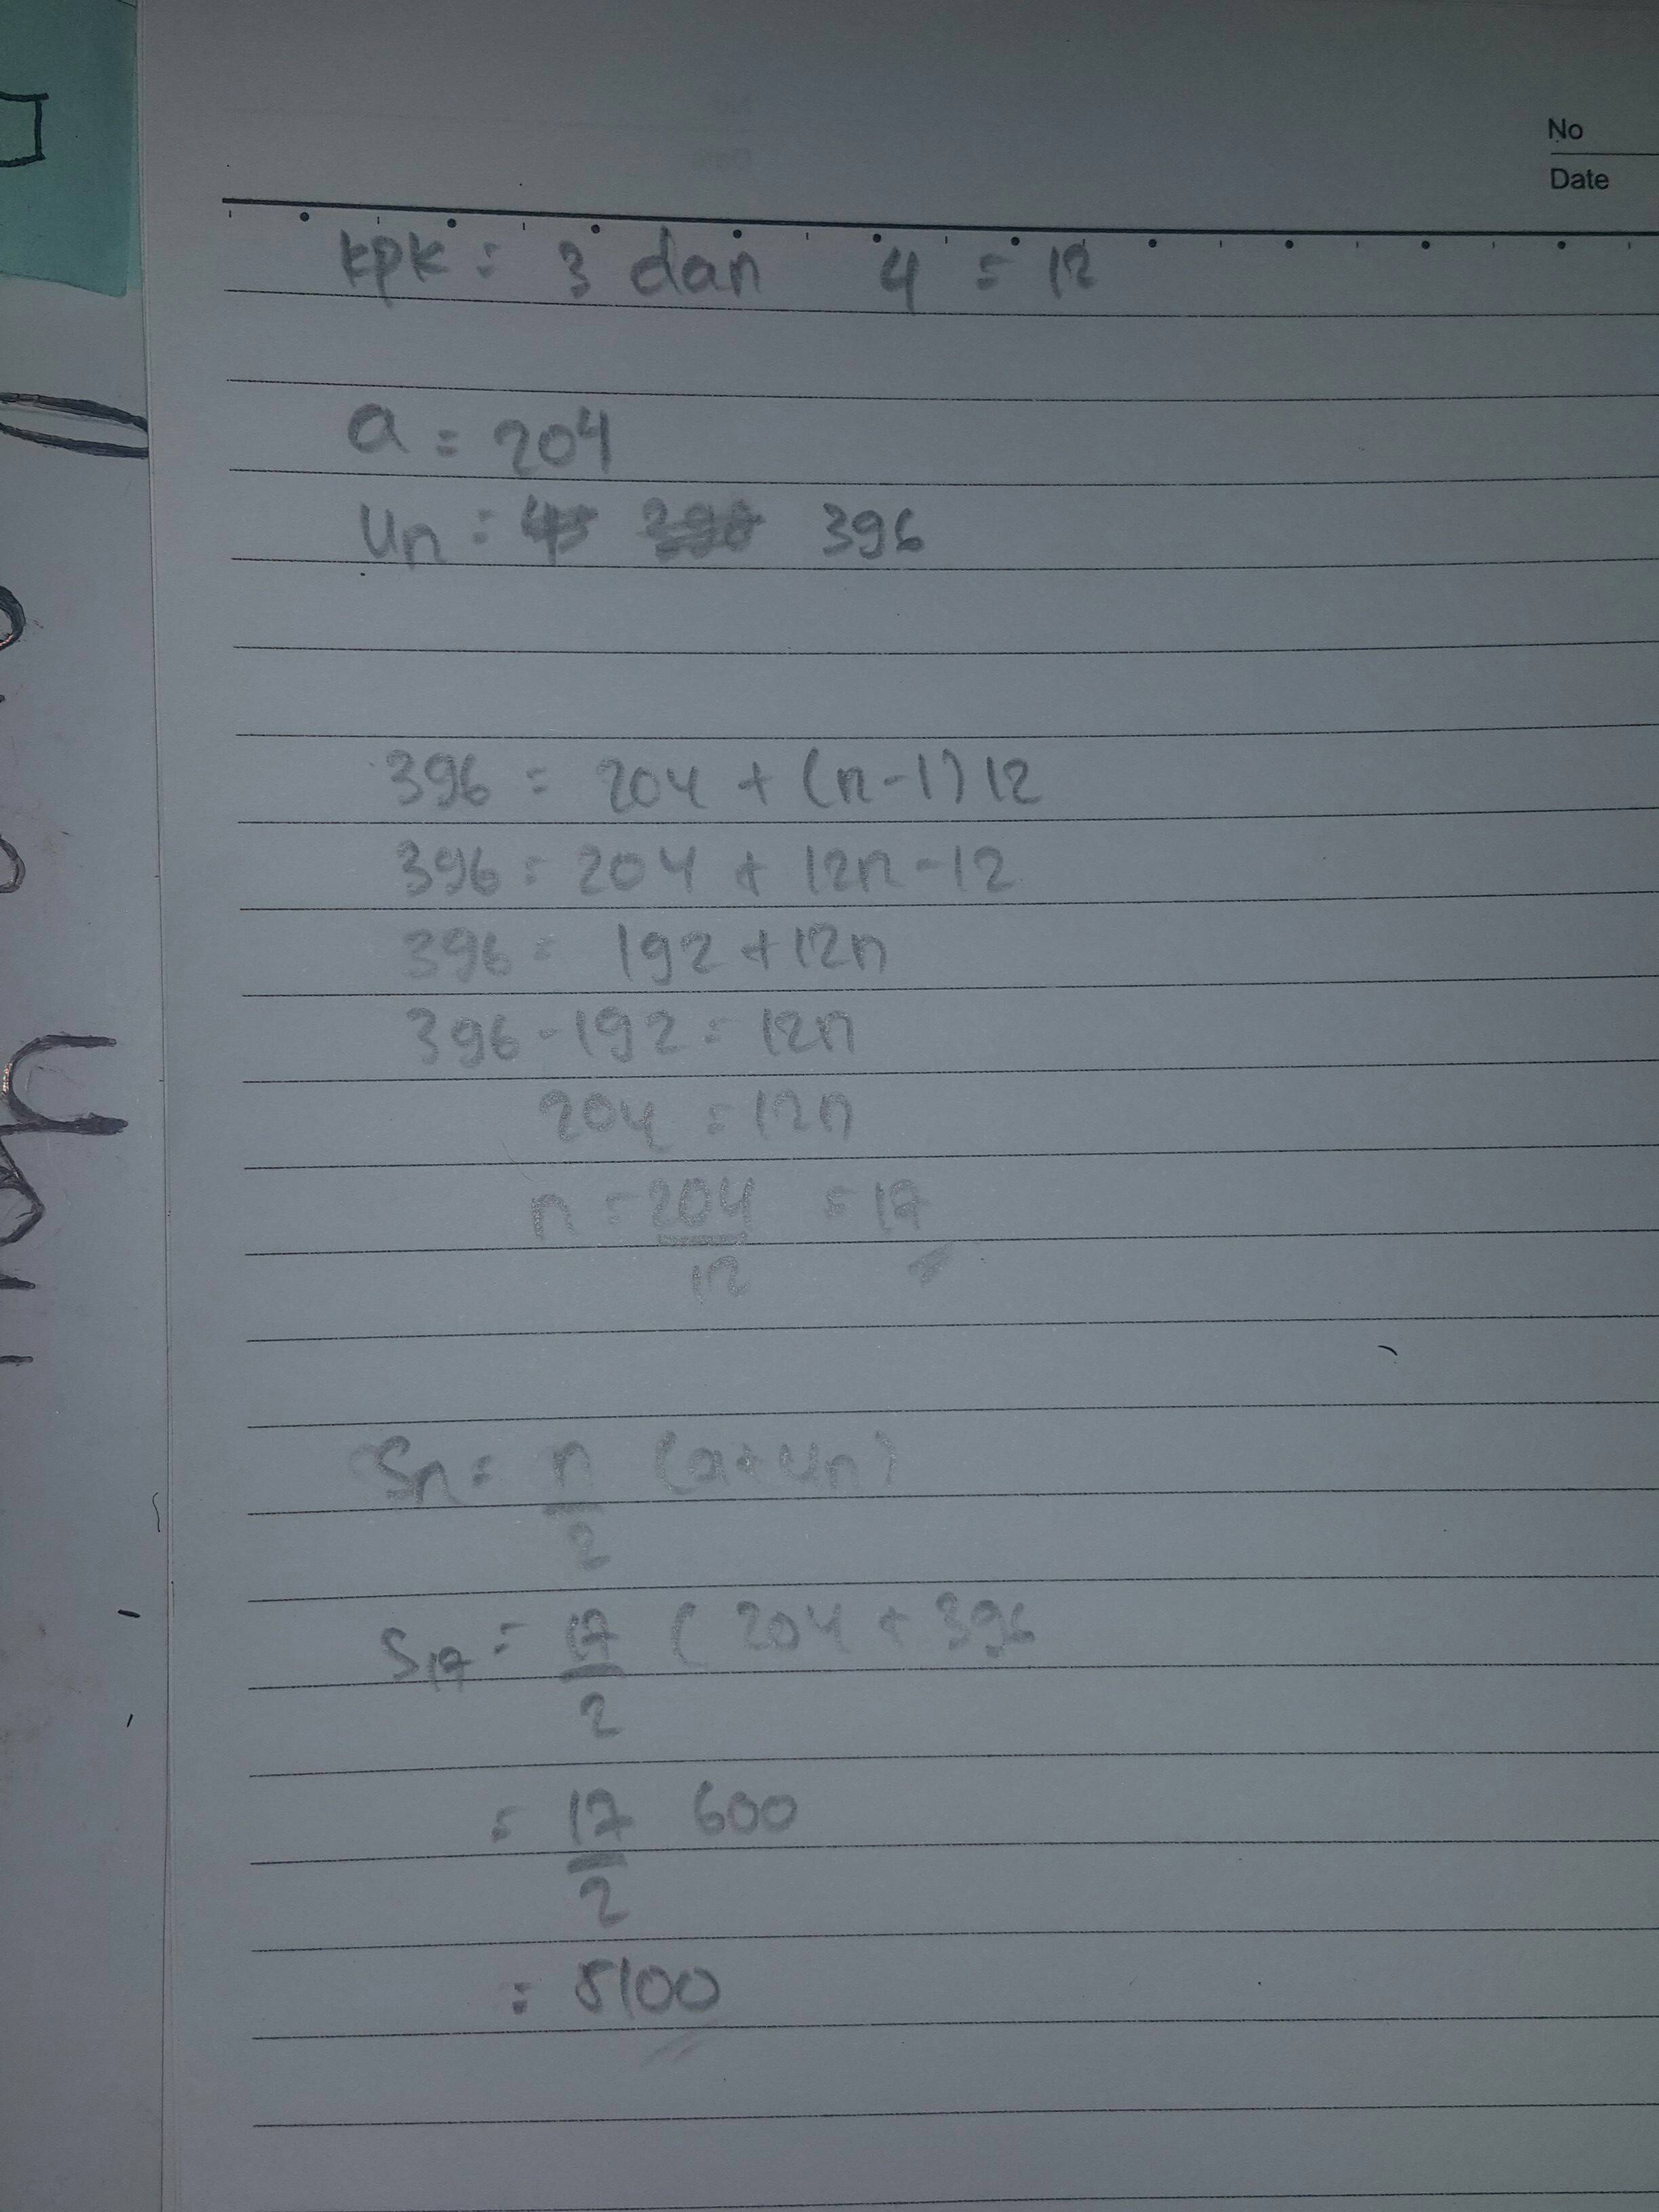 No
Date
kpk : 3 dan 4 = 12
a = 204
Un : 396
396 = 204 + (n-1) 12
396 = 204 + 12n - 12
396 = 192 + 12n
396 - 192 = 12n
204 = 12n
n = 204 = 17
12
Sn = n (a + Un)
2
S17 = 17 ( 204 + 396
2
= 17 600
2
= 5100